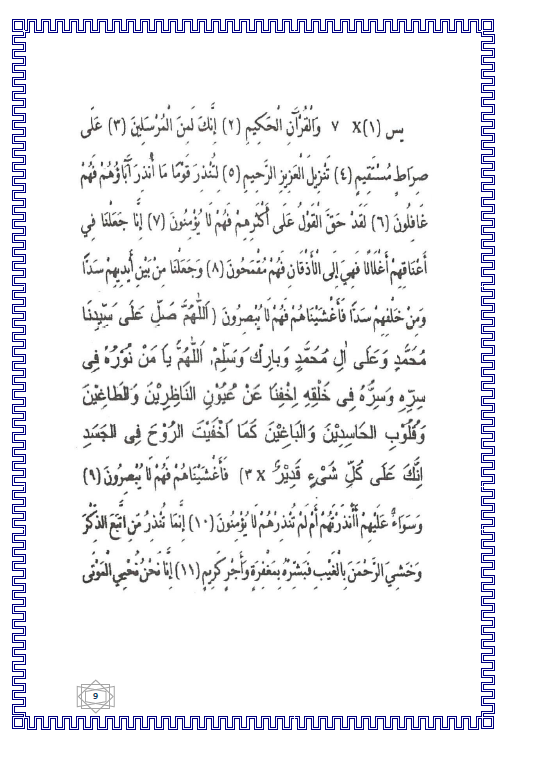 يس (١)X ٧ وَالْقُرْآنِ الْحَكِيمِ (٢) إِنَّكَ لَمِنَ الْمُرْسَلِينَ (٣) عَلَى
صِرَاطٍ مُسْتَقِيمٍ (٤) تَنْزِيلَ الْعَزِيزِ الرَّحِيمِ (٥) لِتُنْذِرَ قَوْمًا مَا أُنْذِرَ آبَاؤُهُمْ فَهُمْ
غَافِلُونَ (٦) لَقَدْ حَقَّ الْقَوْلُ عَلَى أَكْثَرِهِمْ فَهُمْ لَا يُؤْمِنُونَ (٧) إِنَّا جَعَلْنَا فِي
أَعْنَاقِهِمْ أَغْلَالًا فَهِيَ إِلَى الْأَذْقَانِ فَهُمْ مُقْمَحُونَ (٨) وَجَعَلْنَا مِنْ بَيْنِ أَيْدِيهِمْ سَدًّا
وَمِنْ خَلْفِهِمْ سَدًّا فَأَغْشَيْنَاهُمْ فَهُمْ لَا يُبْصِرُونَ ( اَللّٰهُمَّ صَلِّ عَلَى سَيِّدِنَا
مُحَمَّدٍ وَعَلَى اٰلِ مُحَمَّدٍ وَبَارِكْ وَسَلِّمْ, اَللّٰهُمَّ يَا مَنْ نُوْرُهُ فِى
سِرِّهِ وَسِرُّهُ فِى خَلْقِهِ اِخْفِنَا عَنْ عُيُوْنِ النَّاظِرِيْنَ وَالطَّاغِيْنَ
وَقُلُوْبِ الْحَاسِدِيْنَ وَالْبَاغِيْنَ كَمَا اَخْفَيْتَ الرُّوْحَ فِى الْجَسَدِ
اِنَّكَ عَلَى كُلِّ شَىْءٍ قَدِيْرٌ X ٣) فَأَغْشَيْنَاهُمْ فَهُمْ لَا يُبْصِرُونَ (٩)
وَسَوَاءٌ عَلَيْهِمْ أَأَنْذَرْتَهُمْ أَمْ لَمْ تُنْذِرْهُمْ لَا يُؤْمِنُونَ (١٠) إِنَّمَا تُنْذِرُ مَنِ اتَّبَعَ الذِّكْرَ
وَخَشِيَ الرَّحْمَنَ بِالْغَيْبِ فَبَشِّرْهُ بِمَغْفِرَةٍ وَأَجْرٍ كَرِيمٍ (١١) إِنَّا نَحْنُ نُحْيِي الْمَوْتَى
9